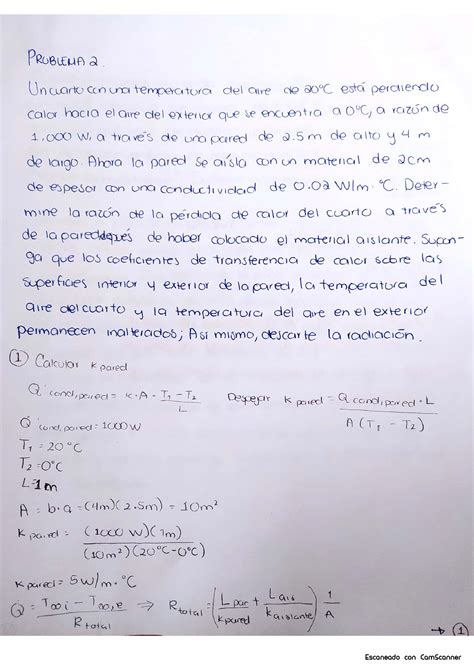 PROBLEMA 2.
Un cuarto con una temperatura del aire de 20°C está perdiendo
calor hacia el aire del exterior que se encuentra a 0°C, a razón de
1,000 W, a través de una pared de 2.5 m de alto y 4 m
de largo. Ahora la pared se aísla con un material de 2cm
de espesor con una conductividad de 0.02 W/m·°C. Deter-
mine la razón de la pérdida de calor del cuarto a través
de la pared después de haber colocado el material aislante. Supon-
ga que los coeficientes de transferencia de calor sobre las
superficies interior y exterior de la pared, la temperatura del
aire del cuarto y la temperatura del aire en el exterior
permanecen inalterados; Asi mismo, descarte la radiación.
① Calcular k pared
Q̇ cond, pared = k·A· T₁-T₂ / L   Despejar k pared = Q cond, pared · L / A (T₁ - T₂)
Q̇ cond, pared = 1000 W
T₁ = 20°C
T₂ = 0°C
L = 1m
A = b·a = (4m)(2.5m) = 10m²
k pared = (1000 W)(1m) / (10m²)(20°C-0°C)
k pared = 5 W/m·°C
Q̇ = T∞i - T∞,e / R total ⇒ R total = (L par / k pared + L ais / k aislante) 1 / A
→ ①
Escaneado con CamScanner